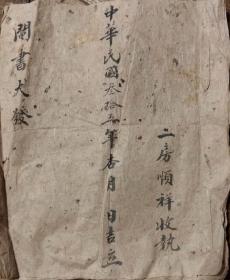 二房順祥收執
中華民國叁拾五年杏月 日吉立
鬮書大發